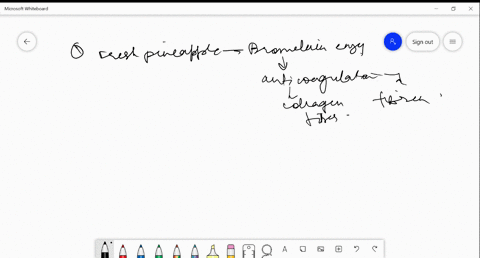 Microsoft Whiteboard
Sign out
① pineapple → Bromelain enzy
anti coagulation
collagen fibrin
A